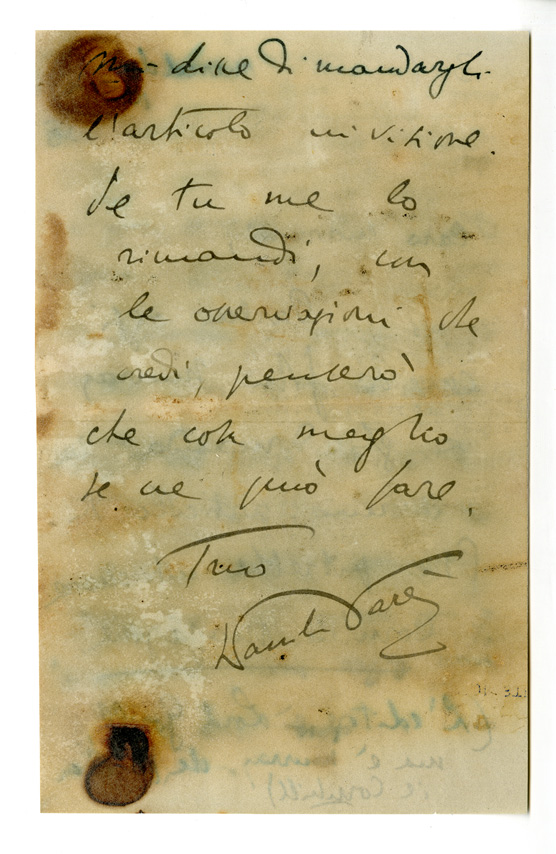 mi dice di mandargli
l'articolo in visione.
Se tu me lo
rimandi, con
le osservazioni che
credi, penserò
che cosa meglio
se ne può fare.
Tuo
(L'editore
ma è